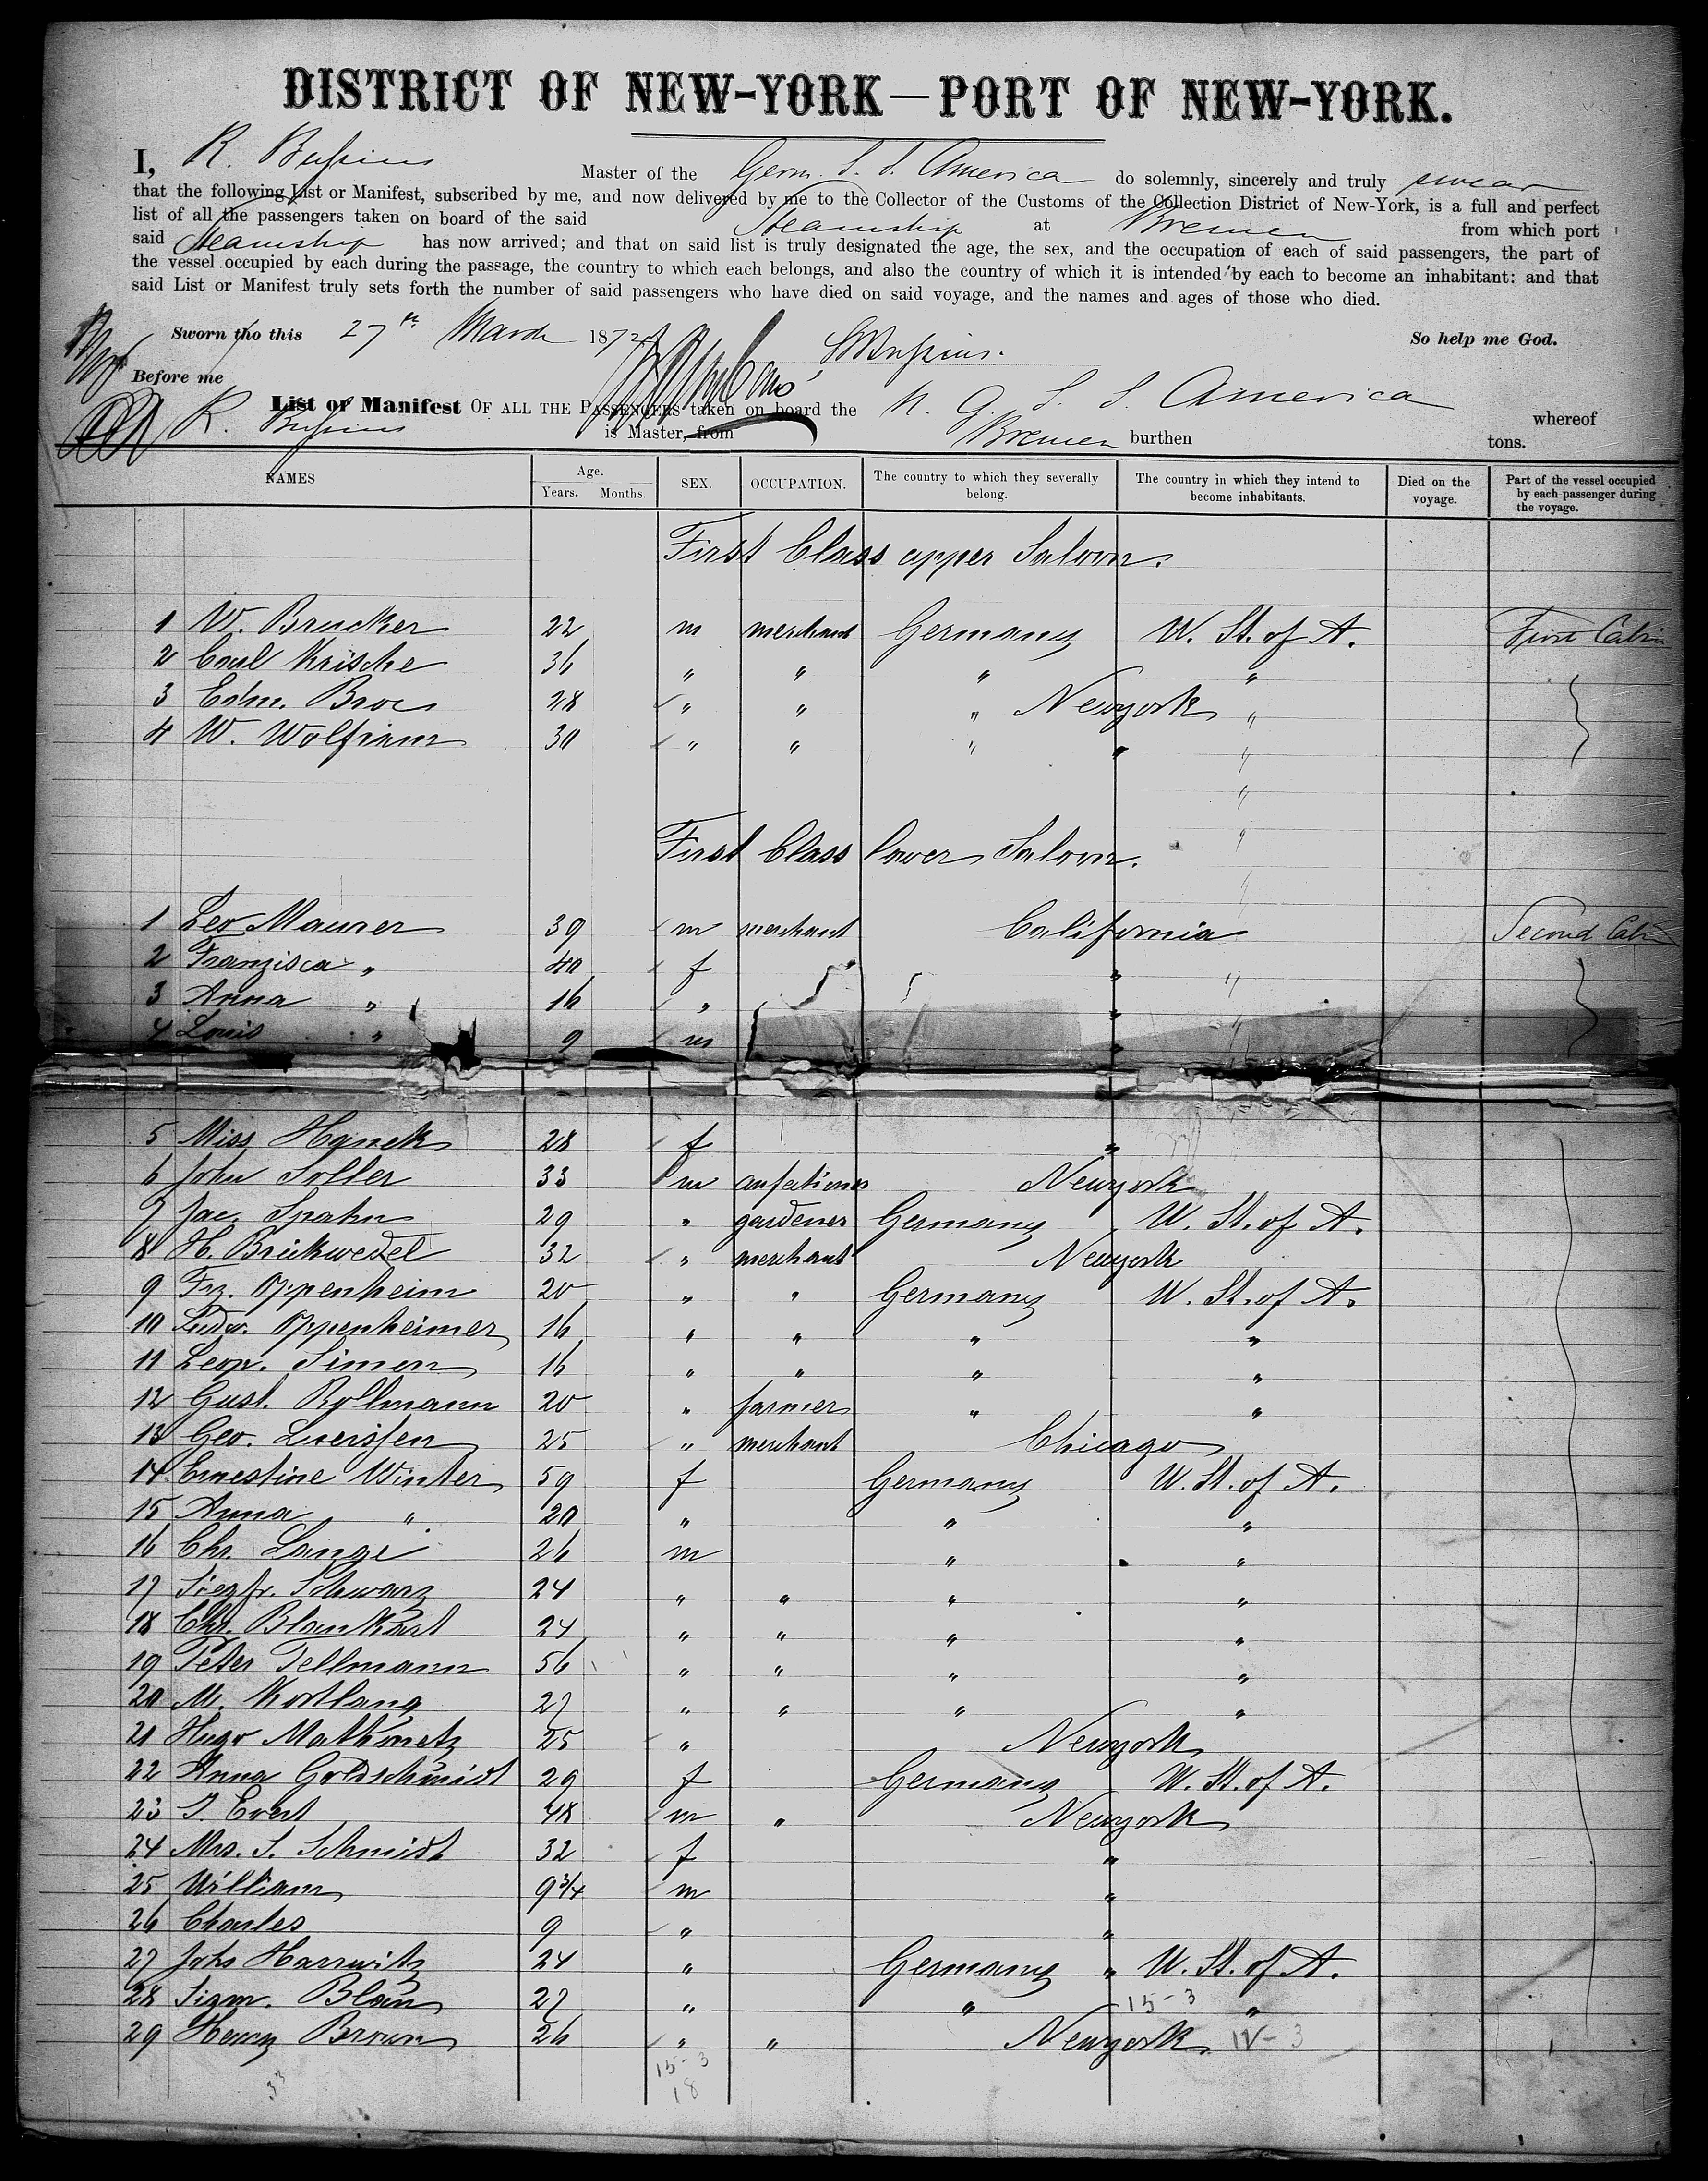 DISTRICT OF NEW-YORK—PORT OF NEW-YORK.
I, R. Bussius Master of the Germ. S. S. America do solemnly, sincerely and truly swear
that the following List or Manifest, subscribed by me, and now delivered by me to the Collector of the Customs of the Collection District of New-York, is a full and perfect
list of all the passengers taken on board of the said Steamship at Bremen from which port
said Steamship has now arrived; and that on said list is truly designated the age, the sex, and the occupation of each of said passengers, the part of
the vessel occupied by each during the passage, the country to which each belongs, and also the country of which it is intended by each to become an inhabitant: and that
said List or Manifest truly sets forth the number of said passengers who have died on said voyage, and the names and ages of those who died.
Sworn tho this 27th March 1872 R Bussius. So help me God.
Before me
List or Manifest OF ALL THE PASSENGERS taken on board the N. G. S. S. America whereof
R. Bussius is Master, from Bremen burthen tons.
NAMES Age. Years. Months. SEX. OCCUPATION. The country to which they severally belong. The country in which they intend to become inhabitants. Died on the voyage. Part of the vessel occupied by each passenger during the voyage.
First Class upper Saloon.
1 W. Brucker 22 m merchant Germany U. St. of A. First Cabin
2 Carl Krische 36 " " " "
3 Edm. Broc 28 " " " Newyork "
4 W. Wolfram 30 " " " " "
"
First Class lower Saloon. "
1 Leo Maurer 39 m merchant California Second Cabin
2 Franzisca " 40 f " "
3 Anna " 16 " " "
4 Louis " 9 m "
5 Miss Hanek 28 f "
6 John Soller 33 m confectioner Newyork
7 Jac. Spahn 29 " gardener Germany U. St. of A.
8 H. Brickwedel 32 " merchant Newyork
9 Frz. Oppenheim 20 " " Germany U. St. of A.
10 Ludw. Oppenheimer 16 " " " "
11 Leop. Simon 16 " " " "
12 Gust. Rollmann 20 " farmer " "
13 Geo. Lverssen 25 " merchant Chicago
14 Ernestine Winter 59 f Germany U. St. of A.
15 Anna " 20 " " "
16 Chr. Lange 26 m " "
17 Siegfr. Schwarz 24 " " " "
18 Chr. Blankart 24 " " " "
19 Peter Tellmann 56 " " " "
20 M. Kortlang 27 " " " "
21 Hugo Mathonetz 25 " Newyork
22 Anna Goldschmidt 29 f Germany U. St. of A.
23 J. Evert 48 m " Newyork
24 Mrs. S. Schmidt 32 f "
25 William 9 3/4 m "
26 Charles 9 " "
27 Johs Harrwitz 24 " Germany " U. St. of A.
28 Sigm. Blau 27 " " 15-3 "
29 Henry Brown 26 " " Newyork 12-3
33 15-3
18